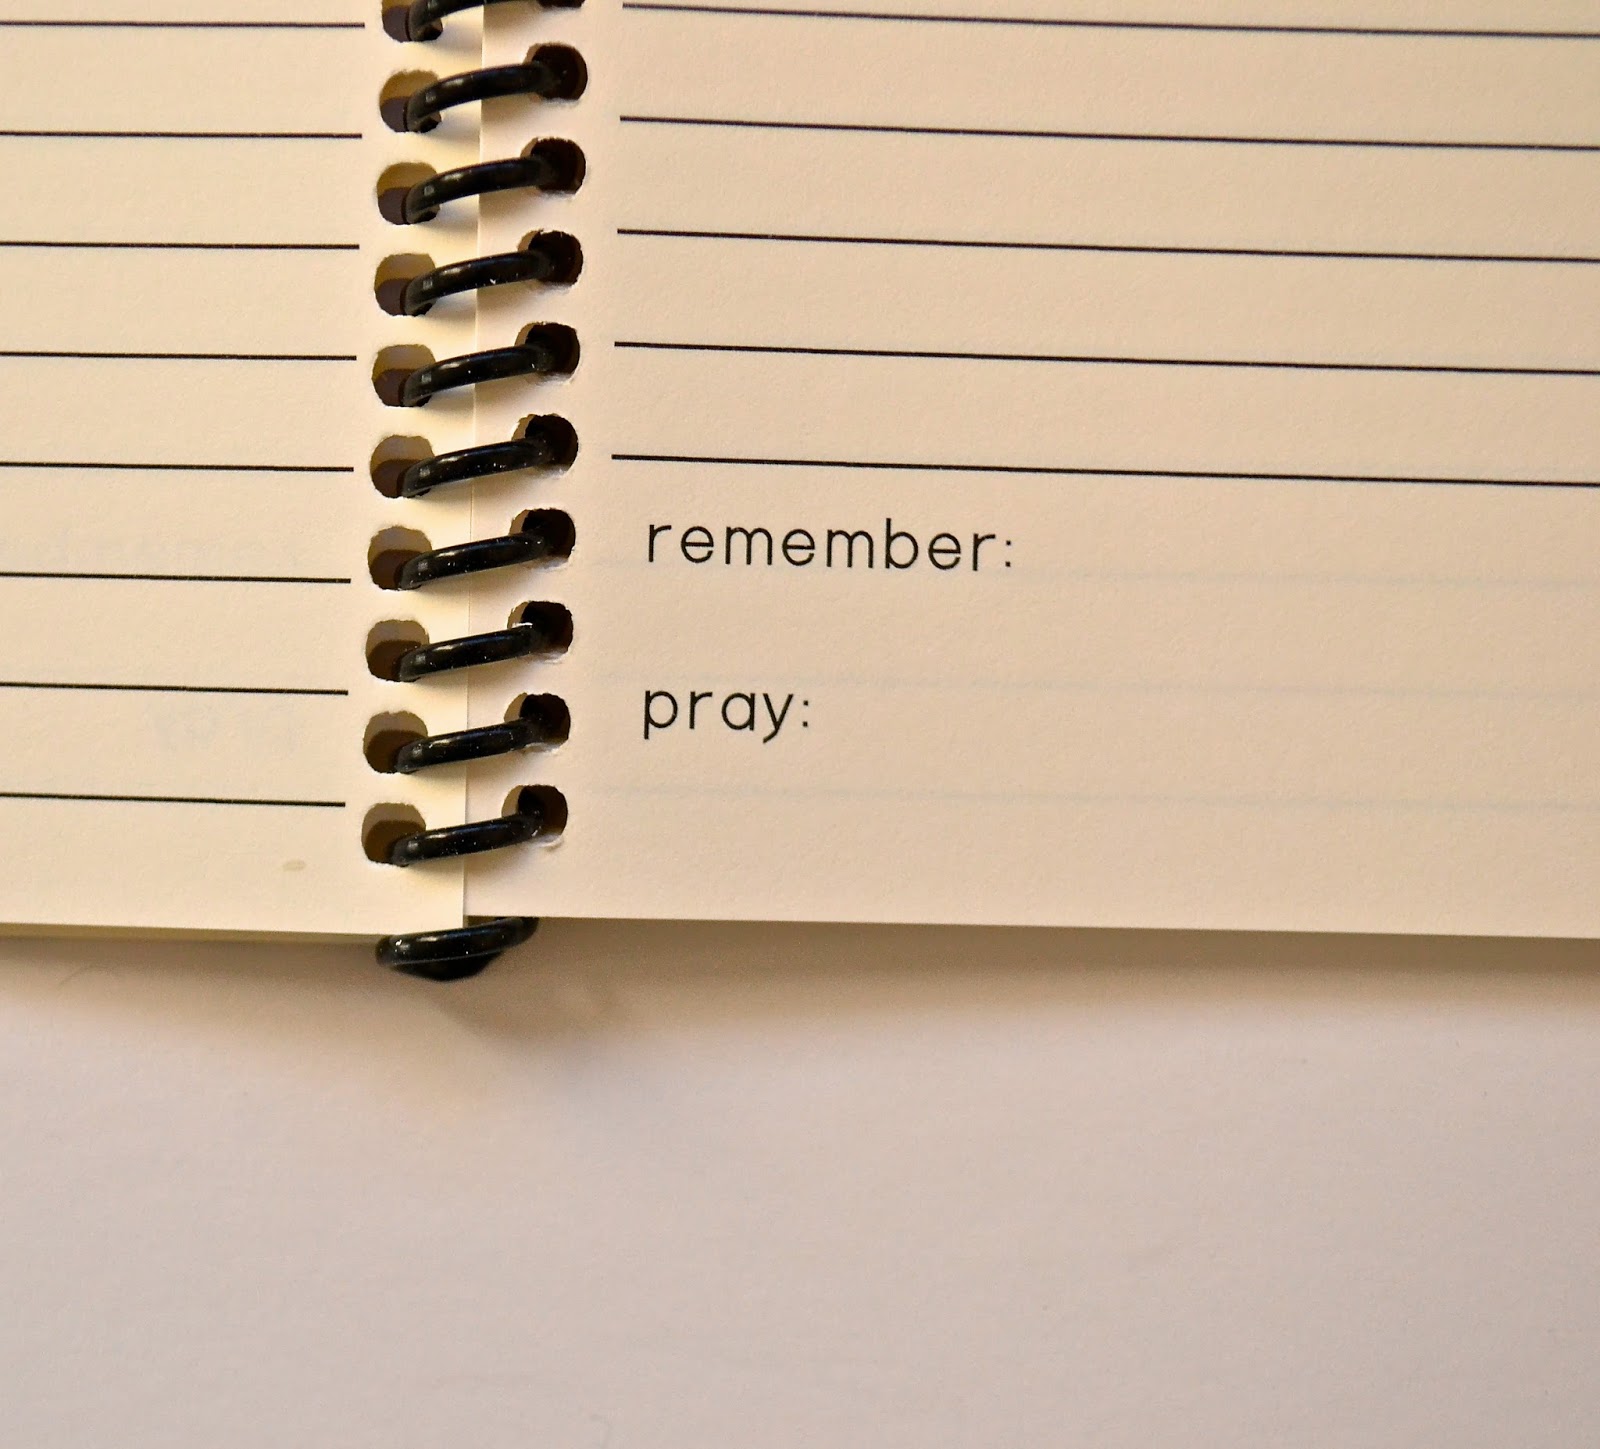 remember:
pray: